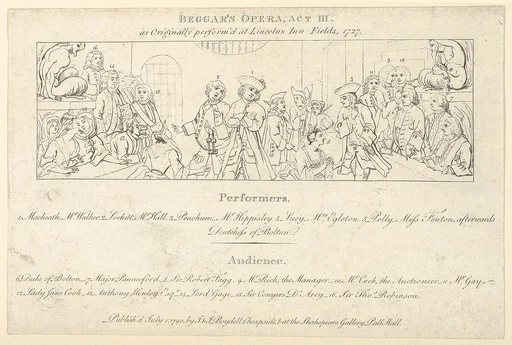 BEGGAR'S OPERA, ACT III.
as Originally perform'd at Lincolns Inn Fields, 1727.
Performers.
1, Macheath, Mr. Walker, 2, Lockitt, Mr. Hall, 3, Peachum, Mr. Hippisley, 4, Lucy, Mrs. Egleton, 5, Polly, Miss Fenton, afterwards
Dutchess of Bolton.
Audience.
6, Duke of Bolton, 7, Major Paunceford, 8, Sir Robert Fagg, 9, Mr. Rich, the Manager, 10, Mr. Cock, the Auctioneer, 11, Mr. Gay,
12, Lady Jane Cook, 13, Anthony Henley, Esqr. 14, Lord Gage, 15, Sir Conyers D'Arcy, 16, Sir Thos. Robinson.
Publish'd July 1, 1790, by J. & J. Boydell, Cheapside, & at the Shakspeare Gallery, Pall Mall.